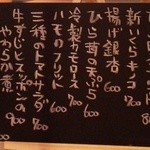 新いくらキノコ
700
揚げ銀杏
600
ひら茸の天ぷら
600
冷製カモロース
700
ハモのフリット
800
三種のトマトサラダ
700
牛すじとスッポンの
やわらか煮
900